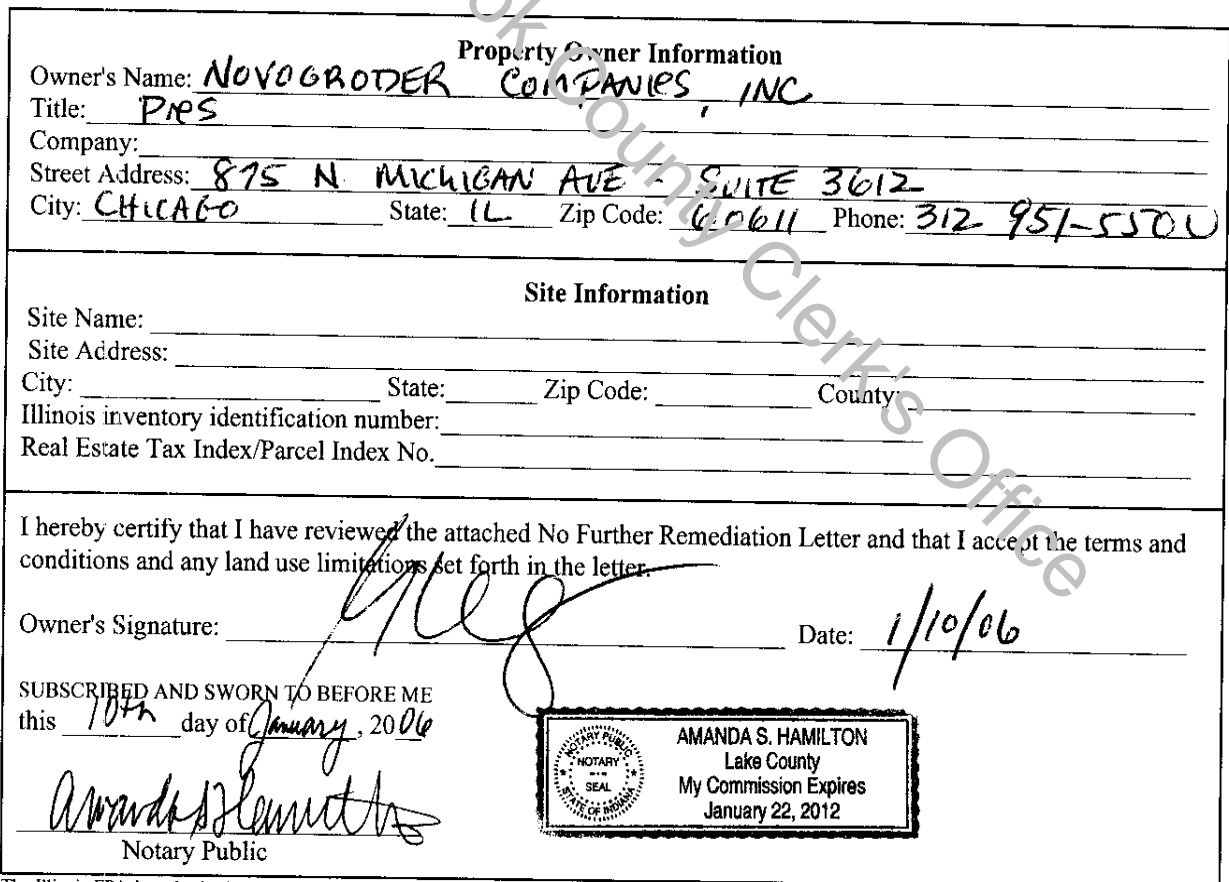 Property Owner Information
Owner's Name: NOVOGRODER COMPANIES, INC
Title: Pres
Company:
Street Address: 875 N. MICHIGAN AVE - SUITE 3612
City: CHICAGO State: IL Zip Code: 60611 Phone: 312 951-5500
Site Information
Site Name:
Site Address:
City: State: Zip Code: County:
Illinois inventory identification number:
Real Estate Tax Index/Parcel Index No.
I hereby certify that I have reviewed the attached No Further Remediation Letter and that I accept the terms and
conditions and any land use limitations set forth in the letter.
Owner's Signature: Date: 1/10/06
SUBSCRIBED AND SWORN TO BEFORE ME
this 10th day of January, 2006
Amanda S Hamilton
Notary Public
NOTARY PUBLIC
NOTARY
SEAL
STATE OF INDIANA
AMANDA S. HAMILTON
Lake County
My Commission Expires
January 22, 2012
County Clerk's Office